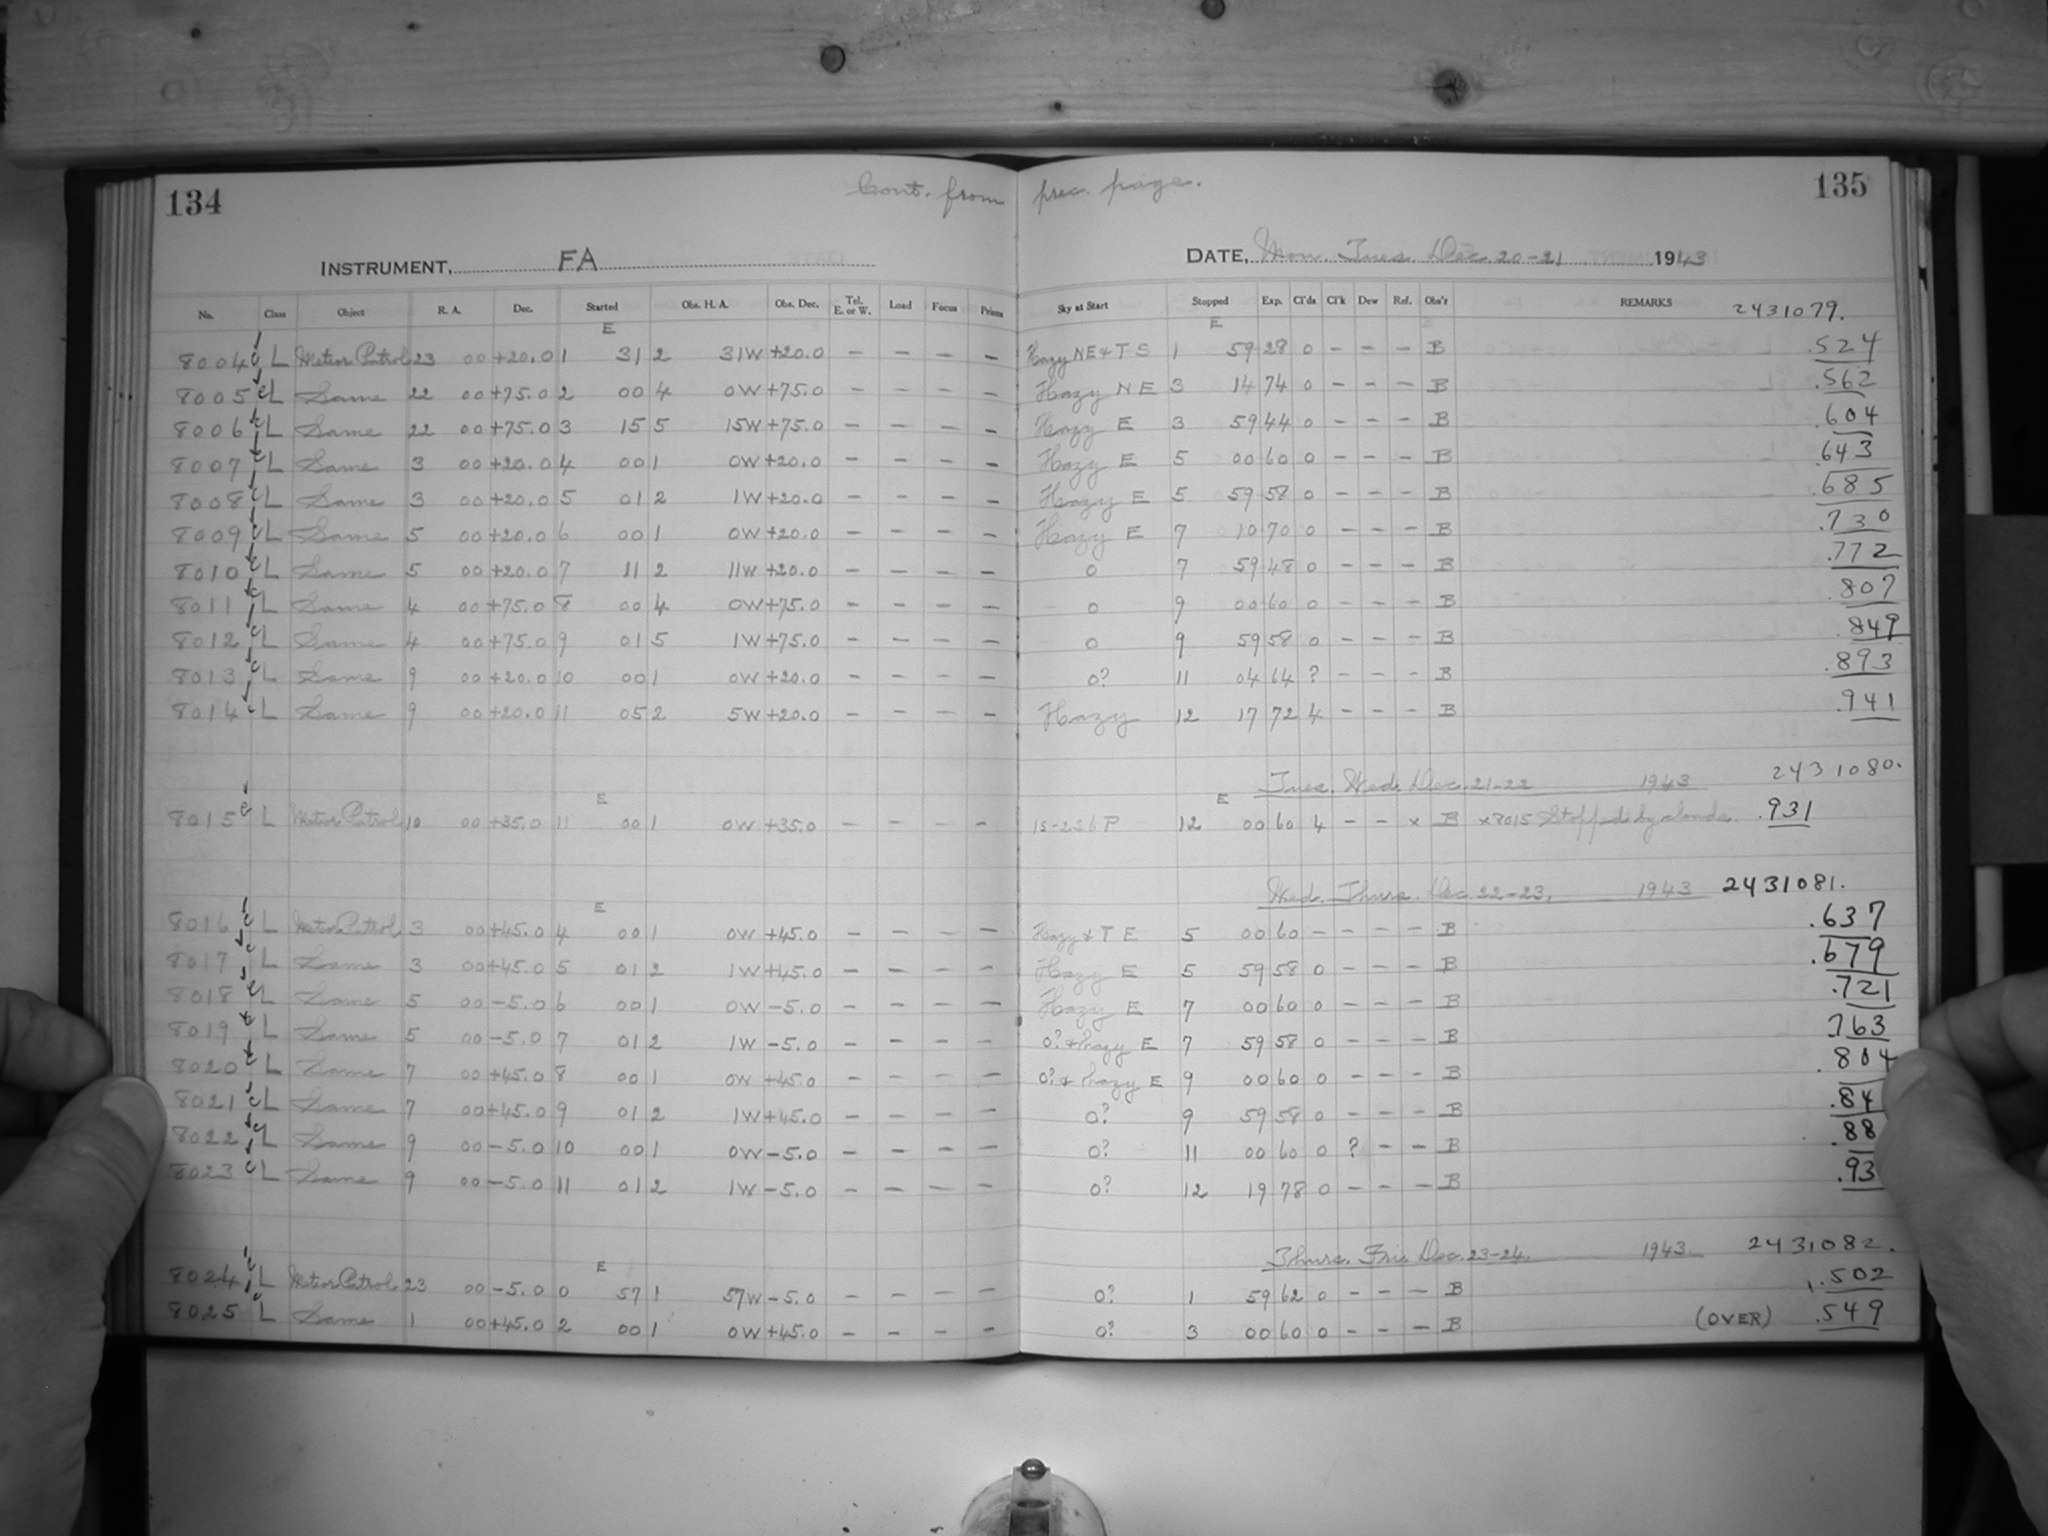 134 Cont. from prec. page. 135
INSTRUMENT, FA DATE, Mon. Tues. Dec. 20-21 1943
No. Class Object R. A. Dec. Started Obs. H. A. Obs. Dec. Tel. E. or W. Load Focus Prisms Sky at Start Stopped Exp. Cl'ds Cl'k Dew Ref. Obs'r REMARKS 2431079.
E E
8004 L Meteor Patrol 23 00 +20.0 1 31 2 31W +20.0 - - - - Hazy NE + T S 1 59 28 0 - - - B .524
8005 L Same 22 00 +75.0 2 00 4 0W +75.0 - - - - Hazy NE 3 14 74 0 - - - B .562
8006 L Same 22 00 +75.0 3 15 5 15W +75.0 - - - - Hazy E 3 59 44 0 - - - B .604
8007 L Same 3 00 +20.0 4 00 1 0W +20.0 - - - - Hazy E 5 00 60 0 - - - B .643
8008 L Same 3 00 +20.0 5 01 2 1W +20.0 - - - - Hazy E 5 59 58 0 - - - B .685
8009 L Same 5 00 +20.0 6 00 1 0W +20.0 - - - - Hazy E 7 10 70 0 - - - B .730
8010 L Same 5 00 +20.0 7 11 2 11W +20.0 - - - - 0 7 59 48 0 - - - B .772
8011 L Same 4 00 +75.0 8 00 4 0W +75.0 - - - - 0 9 00 60 0 - - - B .807
8012 L Same 4 00 +75.0 9 01 5 1W +75.0 - - - - 0 9 59 58 0 - - - B .849
8013 L Same 9 00 +20.0 10 00 1 0W +20.0 - - - - 0? 11 04 64 ? - - - B .893
8014 L Same 9 00 +20.0 11 05 2 5W +20.0 - - - - Hazy 12 17 72 4 - - - B .941
Tues. Wed. Dec. 21-22 1943 2431080.
E E
8015 L Meteor Patrol 10 00 +35.0 11 00 1 0W +35.0 - - - - 15-256 P 12 00 60 4 - - x B x8015 Stopped by clouds. .931
Wed. Thurs. Dec. 22-23. 1943 2431081.
E
8016 L Meteor Patrol 3 00 +45.0 4 00 1 0W +45.0 - - - - Hazy + T E 5 00 60 - - - - B .637
8017 L Same 3 00 +45.0 5 01 2 1W +45.0 - - - - Hazy E 5 59 58 0 - - - B .679
8018 L Same 5 00 -5.0 6 00 1 0W -5.0 - - - - Hazy E 7 00 60 0 - - - B .721
8019 L Same 5 00 -5.0 7 01 2 1W -5.0 - - - - 0? + hazy E 7 59 58 0 - - - B .763
8020 L Same 7 00 +45.0 8 00 1 0W +45.0 - - - - 0? + hazy E 9 00 60 0 - - - B .804
8021 L Same 7 00 +45.0 9 01 2 1W +45.0 - - - - 0? 9 59 58 0 - - - B .84
8022 L Same 9 00 -5.0 10 00 1 0W -5.0 - - - - 0? 11 00 60 0 ? - - B .88
8023 L Same 9 00 -5.0 11 01 2 1W -5.0 - - - - 0? 12 19 78 0 - - - B .93
Thurs. Fri. Dec. 23-24. 1943 2431082.
E
8024 L Meteor Patrol 23 00 -5.0 0 57 1 57W -5.0 - - - - 0? 1 59 62 0 - - - B .502
8025 L Same 1 00 +45.0 2 00 1 0W +45.0 - - - - 0? 3 00 60 0 - - - B (OVER) .549